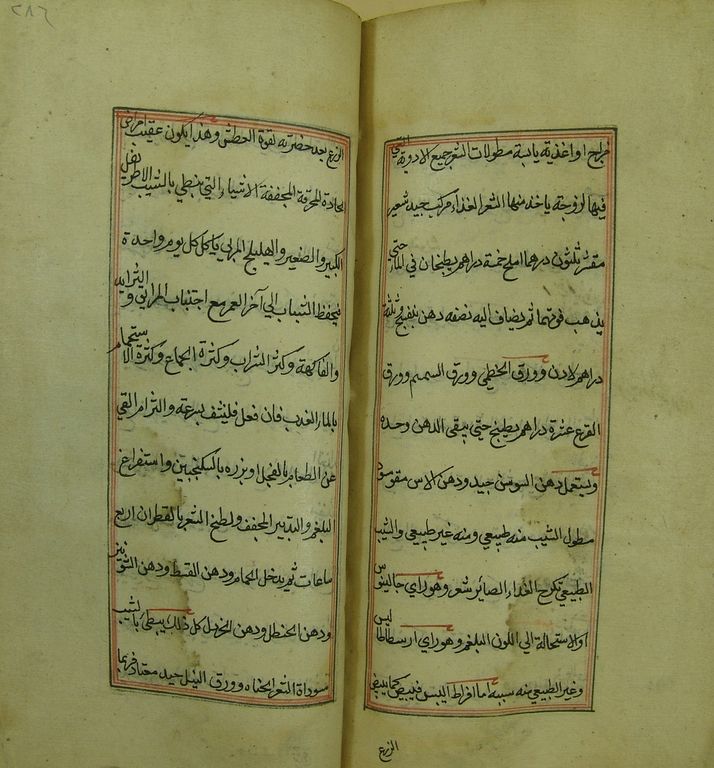 فراخ او اغذية يابسة مطولات الشعر جميع الادوية التي
فيها لزوجة ياخذ منها الشعر الغذاء مركب جيد شعير
مقشر ثلثون درهما املج خمسة دراهم يطبخان في الماء حتى
يذهب قوتهما ثم يضاف اليه نصفه دهن بنفسج وثلثة
دراهم لادن وورق الخطمي وورق السمسم وورق
القرع عشرة دراهم يطبخ حتي يبقى الدهن وحده
ويستعمل دهن السوسن جيد ودهن الاس مقو مسود
مطول الشيب منه طبيعي ومنه غير طبيعي والشيب
الطبيعي تكرج الغذاء الصائر شعر وهو راي جالينوس
او الاستحالة الي اللون البلغم وهو راي ارسطاطاليس
وغير الطبيعي منه سببه اما افراط اليبس فيبيض كما يبيض
الزرع
٢٨٦
الزرع بعد خضرته لقوة العطش وهذا يكون عقيب امراض
الحادة المحرقة المجففة الاشياء التي تبطي بالشيب الاطريفل
الكبير والصغير والهليلج المربي ياكل كل يوم واحدة
فيحفظ الشباب الي آخر العمر مع اجتناب المرابي والثرايد
والفاكهة وكثر الشراب وكثرة الجماع وكثرة الاستحمام
بالماء العذب فان فعل فلينشف بسرعة والتزام القي
عن الطعام بالفجل وبزره بالسكنجبين واستفراغ
البلغم والتدبير المجفف ولطخ الشعر بالقطران اربع
ساعات ثم يدخل الحمام ودهن القسط ودهن الشونيز
ودهن الحنظل ودهن الخردل كل ذلك يبطي بالشيب
مسودات الشعر الحناء وورق النيل جيد معتاد فربما